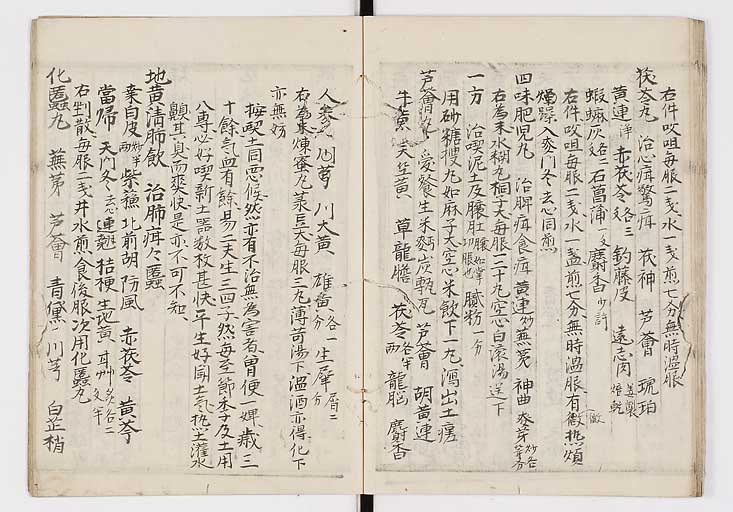 右件㕮咀毎服二戔水一戔煎七分無時温服
茯苓丸 治心疳驚疳 茯神 芦薈 琥珀
黄連 洋 赤茯苓 各三 釣藤皮 遠志肉 姜製焙乾
蝦蟆灰 各二 石菖蒲 一戔 麝香 少許
右件㕮咀毎服二戔水一盞煎七分無時温服有微热煩
燭躁入麦門冬去心同煎
四味肥児丸 治脾疳食疳 黄連 炒 蕪荑 神曲 麥芽 炒各等分
右為末水糊丸桐子大毎服二十丸空心白滚湯送下
一方 治喫泥土及臏肚 腻粉 一分
用砂糖搜丸如麻子大空心米飲下一丸瀉出土瘥
芦薈丸 愛喫生米麪炭甎瓦 芦薈 胡黄連
牛黄 天竺黄 草龍膽 茯苓 各半两 龍脳 麝香
人参 川芎 川大黄 雄黄 各一分 生犀 屑二分
右為末煉蜜丸菉豆大毎服三丸薄荷湯下温酒亦得化下
亦無妨
按喫土同悪候然亦有不治無為害者曽使婢歳三
十餘气血有餘易一夫生三四子然毎至節季及土用
八専心好喫新土器数枚甚快平生好聞土气热土灌水
齅其臭而爽快是亦不可不知
地黄清肺飲 治肺疳々䘌
桒白皮 炒半两 紫蘇 北前胡 防風 赤茯苓 黄芩
當帰 天門冬 去心 連翹 桔梗 生地黄 甘艸 炙各二戔半
右剉散毎服二戔井水煎食後服次用化䘌丸
化䘌丸 蕪荑 芦薈 青黛 川芎 白芷梢